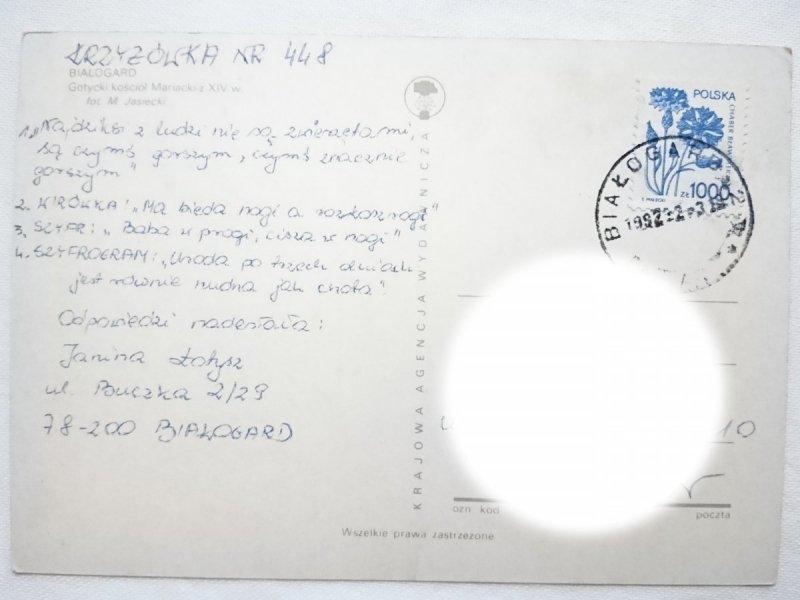 KRZYŻÓWKA NR 448
BIAŁOGARD
Gotycki kościół Mariacki z XIV w.
fot. M. Jasiecki
1. „Najdziksi z ludzi nie są zwierzętami,
są czymś gorszym, czymś znacznie
gorszym"
2. KIRÓWKA: „Ma bieda nogi a rozkosz rogi"
3. SZYFR: „Baba w progi, cisza w nogi"
4. SZYFROGRAM: „Uroda po trzech dniach
jest równie nudna jak cnota".
Odpowiedzi nadesłała:
Janina Łotysz
ul. Buczka 2/29
78-200 BIAŁOGARD
KRAJOWA AGENCJA WYDAWNICZA
POLSKA
CHABER
ZŁ 1000
BIAŁOGARD 2
10
ozn kod
poczta
Wszelkie prawa zastrzeżone